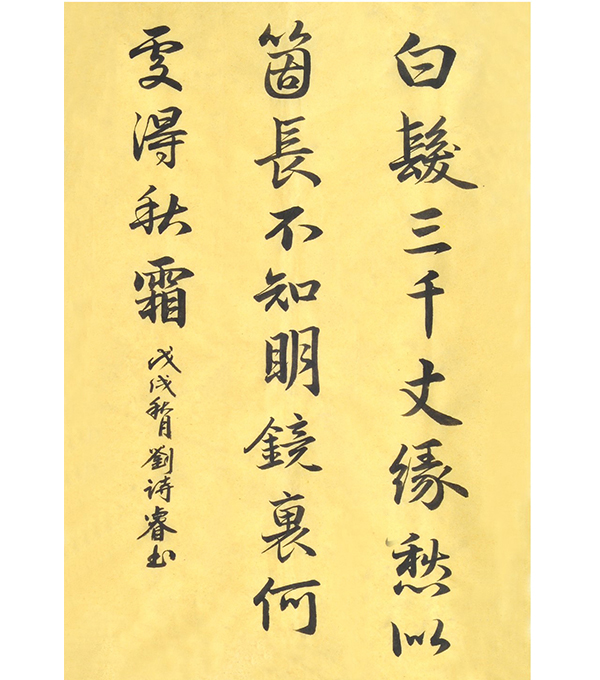 白髮三千丈緣愁似
箇長不知明鏡裏何
處得秋霜
戊戌秋月劉詩睿書